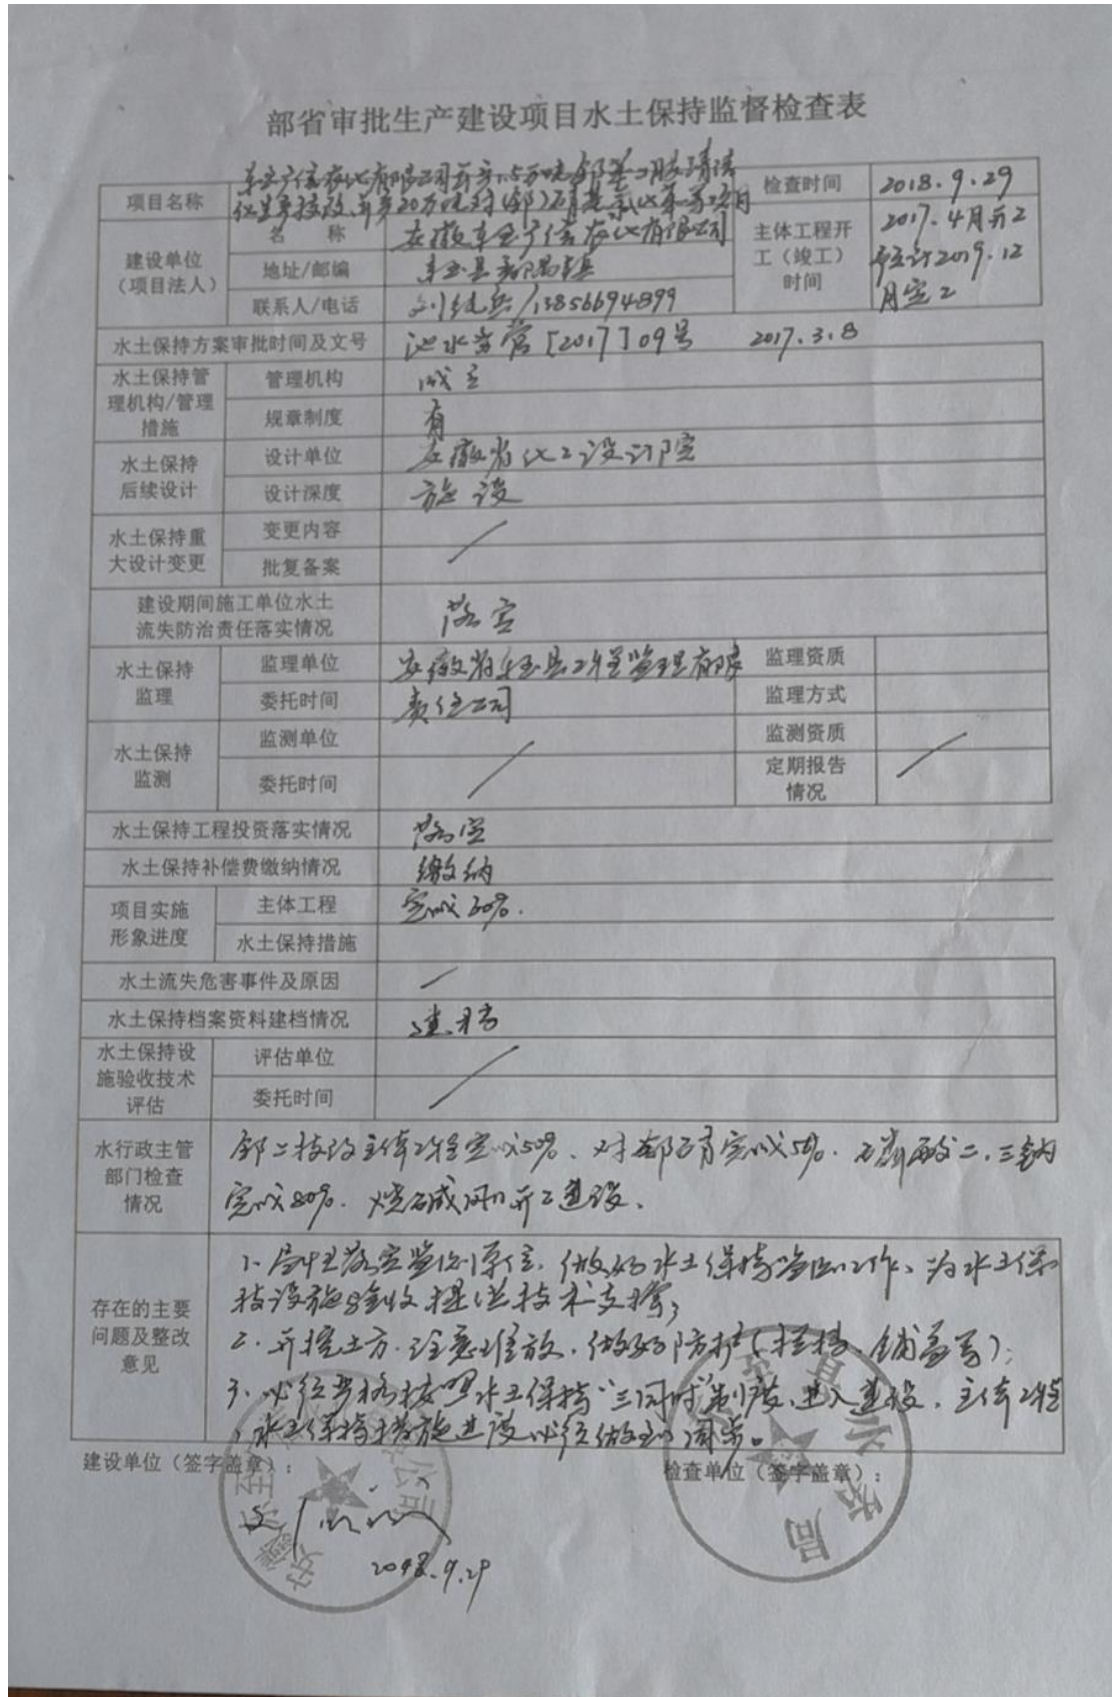 部省审批生产建设项目水土保持监督检查表
项目名称
东至广信农化有限公司年产1.5万吨邻苯二胺清洁
化生产技改、年产20万吨对(邻)硝基氯化苯等项目
检查时间 2018.9.29
建设单位(项目法人)
名 称 安徽东至广信农化有限公司
地址/邮编 东至县香隅镇
联系人/电话 /13856694899
主体工程开工(竣工)时间
2017.4月开工
预计2019.12
月完工
水土保持方案审批时间及文号 池水审管[2017]09号 2017.3.8
水土保持管理机构/管理措施
管理机构 成立
规章制度 有
水土保持后续设计
设计单位 安徽省化工设计院
设计深度 施设
水土保持重大设计变更
变更内容 /
批复备案
建设期间施工单位水土流失防治责任落实情况 落实
水土保持监理
监理单位 安徽省东至县工程监理有限
委托时间 责任公司
监理资质
监理方式
水土保持监测
监测单位 /
委托时间
监测资质 /
定期报告情况
水土保持工程投资落实情况 落实
水土保持补偿费缴纳情况 缴纳
项目实施形象进度
主体工程 完成
水土保持措施
水土流失危害事件及原因 /
水土保持档案资料建档情况 建档
水土保持设施验收技术评估
评估单位 /
委托时间
水行政主管部门检查情况
邻二技改主体工程完成50%、对邻硝完成5%.
完成80%. 烧碱刚开工建设.
存在的主要问题及整改意见
1. 尽快落实监测单位, 做好水土保持监测工作, 为水土保
持设施验收提供技术支撑;
2. 开挖土方. 注意堆放, 做好防护(拦挡、铺盖等);
3. 必须严格按照水土保持"三同时"制度, 进入建设, 主体工程
水土保持措施进度必须做到同步。
建设单位(签字盖章):
检查单位(签字盖章):
2018.9.29